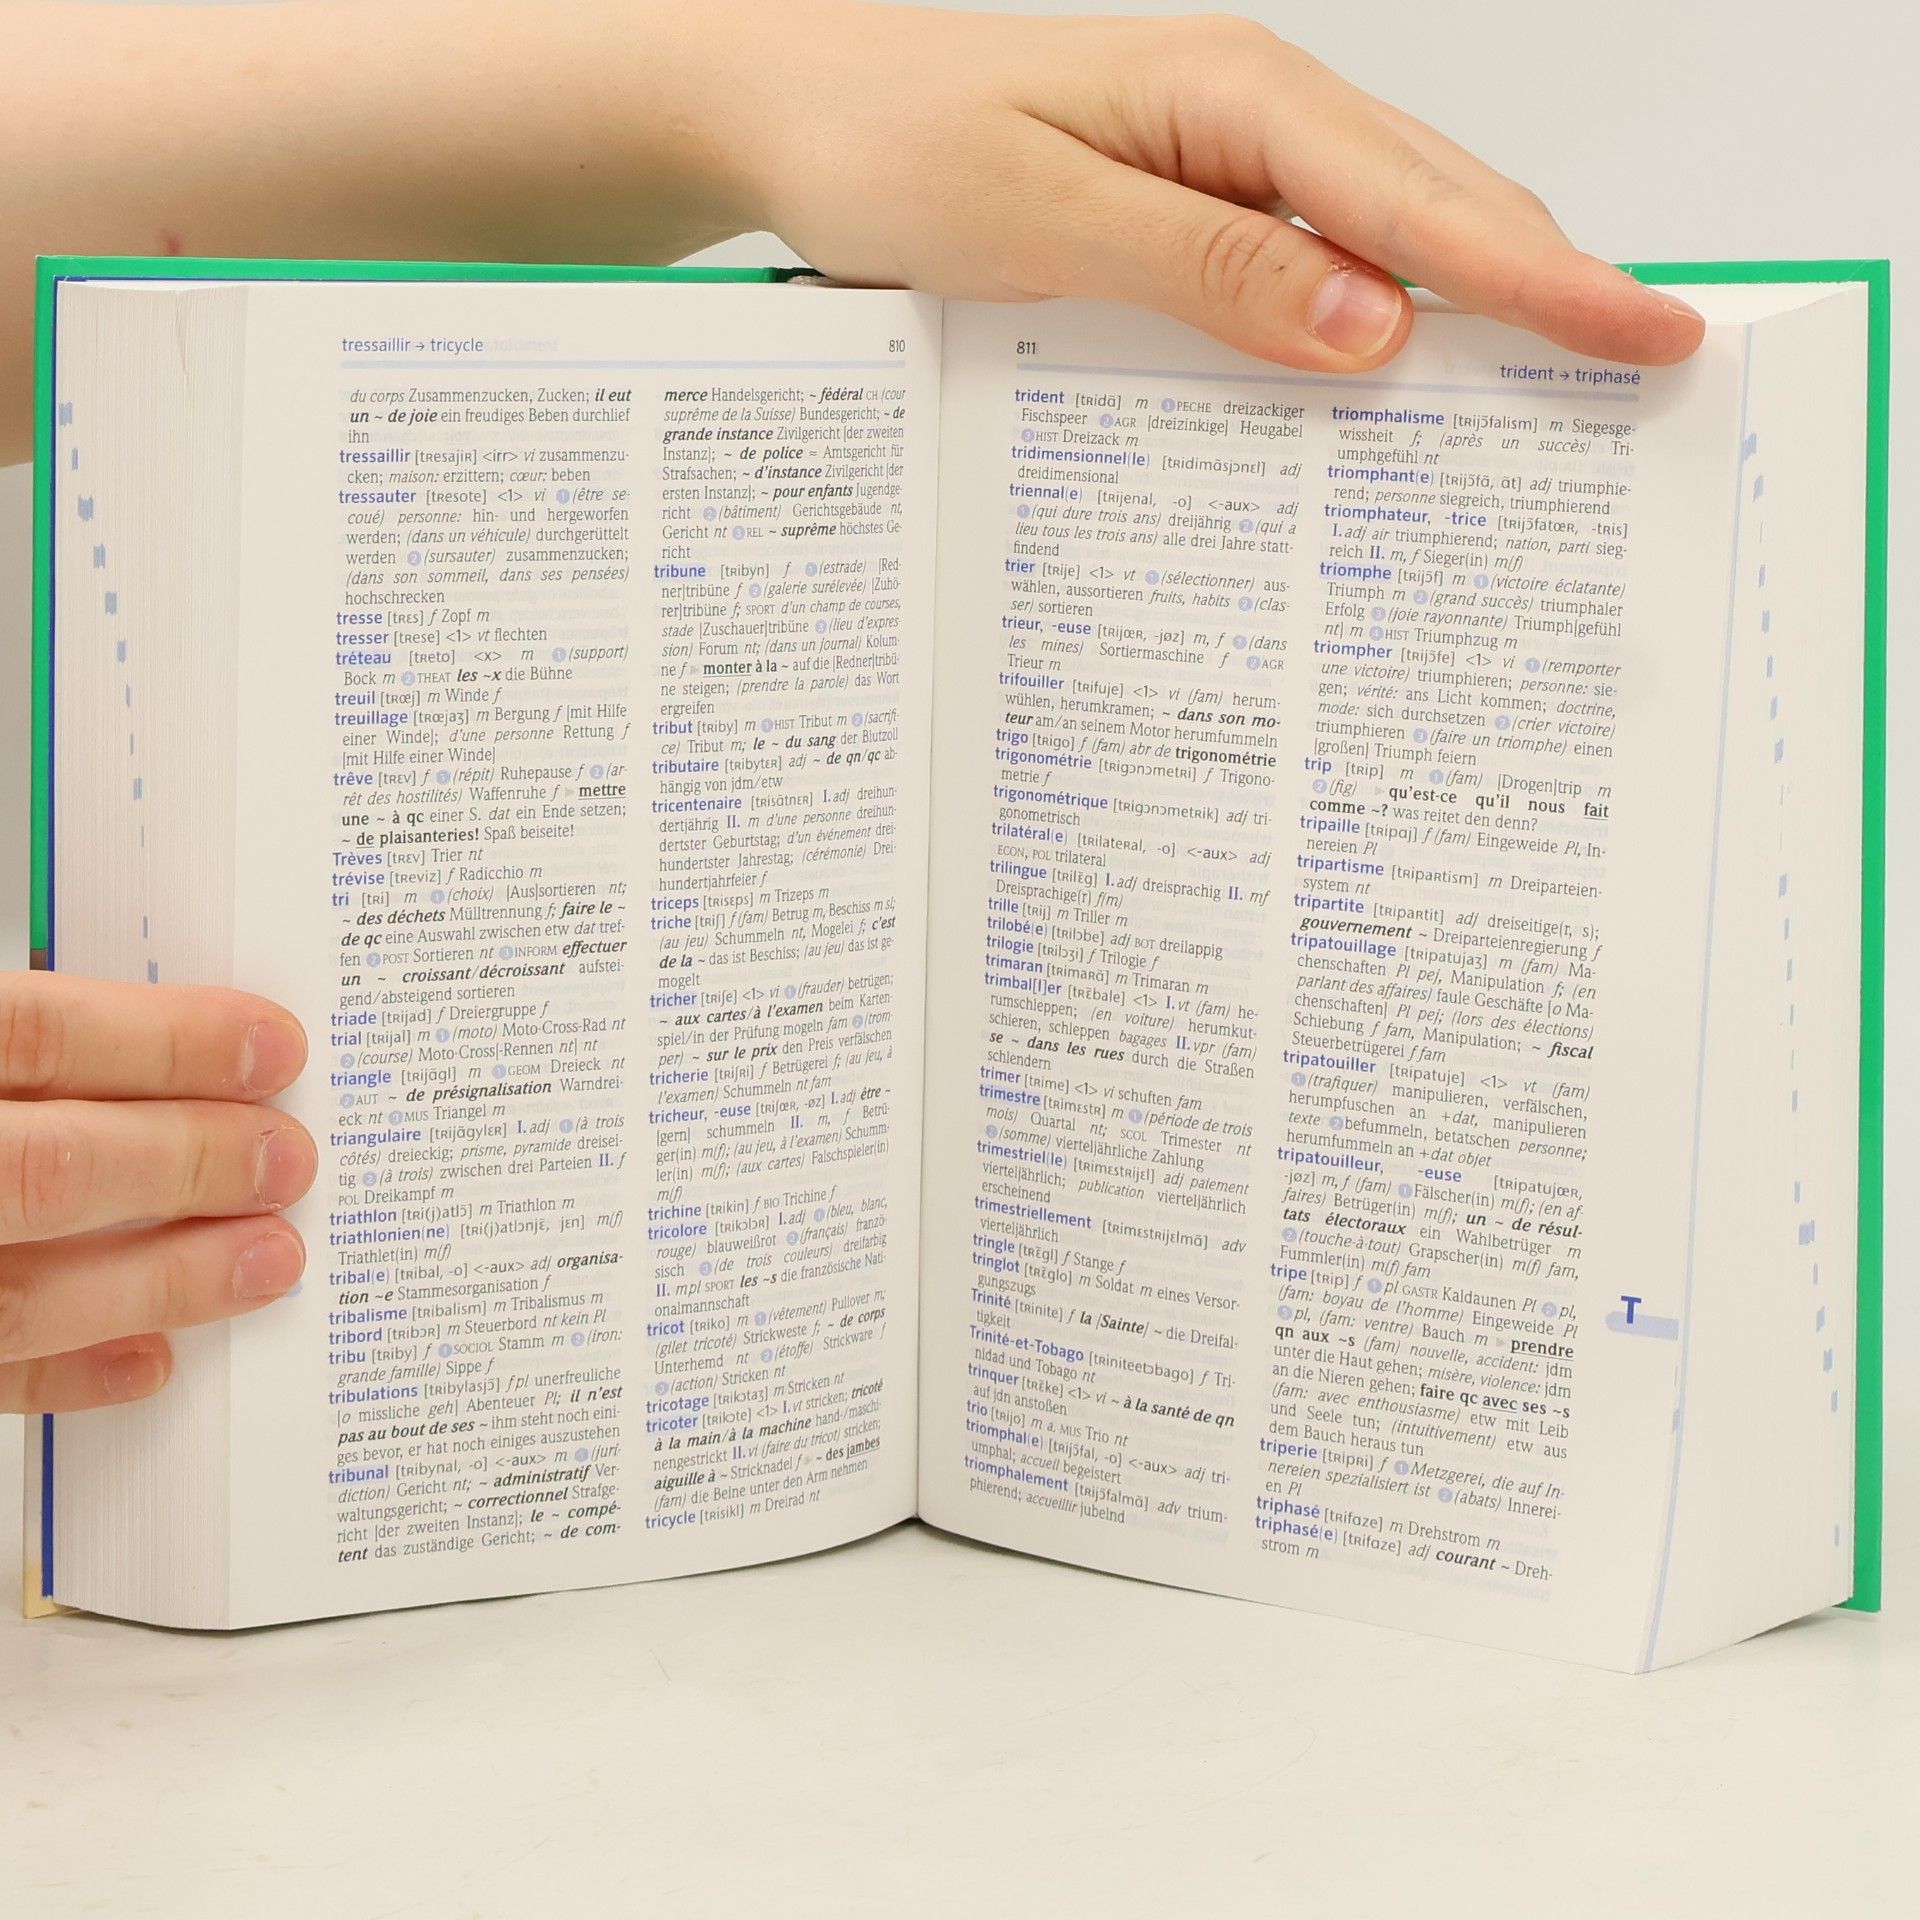 tressaillir → tricycle
810
du corps Zusammenzucken, Zucken; il eut
un ~ de joie ein freudiges Beben durchlief
ihn
tressaillir [tʀesajiʀ] <irr> vi zusammenzu-
cken; maison: erzittern; cœur: beben
tressauter [tʀesote] <1> vi ❶ (être se-
coué) personne: hin- und hergeworfen
werden; (dans un véhicule) durchgerüttelt
werden ❷ (sursauter) zusammenzucken;
(dans son sommeil, dans ses pensées)
hochschrecken
tresse [tʀɛs] f Zopf m
tresser [tʀese] <1> vt flechten
tréteau [tʀeto] <x> m ❶ (support)
Bock m ❷ THEAT les ~x die Bühne
treuil [tʀœj] m Winde f
treuillage [tʀœjaʒ] m Bergung f |mit Hilfe
einer Winde|; d'une personne Rettung f
|mit Hilfe einer Winde|
trêve [tʀɛv] f ❶ (répit) Ruhepause f ❷ (ar-
rêt des hostilités) Waffenruhe f ▶ mettre
une ~ à qc einer S. dat ein Ende setzen;
~ de plaisanteries! Spaß beiseite!
Trèves [tʀɛv] Trier nt
trévise [tʀeviz] f Radicchio m
tri [tʀi] m ❶ (choix) |Aus|sortieren nt;
~ des déchets Mülltrennung f; faire le ~
de qc eine Auswahl zwischen etw dat tref-
fen ❷ POST Sortieren nt ❸ INFORM effectuer
un ~ croissant/décroissant aufstei-
gend/absteigend sortieren
triade [tʀijad] f Dreiergruppe f
trial [tʀijal] m ❶ (moto) Moto-Cross-Rad nt
❷ (course) Moto-Cross|-Rennen nt| nt
triangle [tʀijɑ̃gl] m ❶ GEOM Dreieck nt
❷ AUT ~ de présignalisation Warndrei-
eck nt ❸ MUS Triangel m
triangulaire [tʀijɑ̃gylɛʀ] I. adj ❶ (à trois
côtés) dreieckig; prisme, pyramide dreisei-
tig ❷ (à trois) zwischen drei Parteien II. f
POL Dreikampf m
triathlon [tʀi(j)atlɔ̃] m Triathlon m
triathlonien(ne) [tʀi(j)atlɔnjɛ̃, jɛn] m(f)
Triathlet(in) m(f)
tribal(e) [tʀibal, -o] <-aux> adj organisa-
tion ~e Stammesorganisation f
tribalisme [tʀibalism] m Tribalismus m
tribord [tʀibɔʀ] m Steuerbord nt kein Pl
tribu [tʀiby] f ❶ SOCIOL Stamm m ❷ (iron:
grande famille) Sippe f
tribulations [tʀibylasjɔ̃] fpl unerfreuliche
|o missliche geh| Abenteuer Pl; il n'est
pas au bout de ses ~ ihm steht noch eini-
ges bevor, er hat noch einiges auszustehen
tribunal [tʀibynal, -o] <-aux> m ❶ (juri-
diction) Gericht nt; ~ administratif Ver-
waltungsgericht; ~ correctionnel Strafge-
richt |der zweiten Instanz|; le ~ compé-
tent das zuständige Gericht; ~ de com-
merce Handelsgericht; ~ fédéral CH (cour
suprême de la Suisse) Bundesgericht; ~ de
grande instance Zivilgericht |der zweiten
Instanz|; ~ de police ≈ Amtsgericht für
Strafsachen; ~ d'instance Zivilgericht |der
ersten Instanz|; ~ pour enfants Jugendge-
richt ❷ (bâtiment) Gerichtsgebäude nt,
Gericht nt ❸ REL ~ suprême höchstes Ge-
richt
tribune [tʀibyn] f ❶ (estrade) |Red-
ner|tribüne f ❷ (galerie surélevée) |Zuhö-
rer|tribüne f; SPORT d'un champ de courses,
stade |Zuschauer|tribüne ❸ (lieu d'expres-
sion) Forum nt; (dans un journal) Kolum-
ne f ▶ monter à la ~ auf die |Redner|tribü-
ne steigen; (prendre la parole) das Wort
ergreifen
tribut [tʀiby] m ❶ HIST Tribut m ❷ (sacrifi-
ce) Tribut m; le ~ du sang der Blutzoll
tributaire [tʀibytɛʀ] adj ~ de qn/qc ab-
hängig von jdm/etw
tricentenaire [tʀisɑ̃tnɛʀ] I. adj dreihun-
dertjährig II. m d'une personne dreihun-
dertster Geburtstag; d'un événement drei-
hundertster Jahrestag; (cérémonie) Drei-
hundertjahrfeier f
triceps [tʀisɛps] m Trizeps m
triche [tʀiʃ] f (fam) Betrug m, Beschiss m sl;
(au jeu) Schummeln nt, Mogelei f; c'est
de la ~ das ist Beschiss; (au jeu) das ist ge-
mogelt
tricher [tʀiʃe] <1> vi ❶ (frauder) betrügen;
~ aux cartes/à l'examen beim Karten-
spiel/in der Prüfung mogeln fam ❷ (trom-
per) ~ sur le prix den Preis verfälschen
tricherie [tʀiʃʀi] f Betrügerei f; (au jeu, à
l'examen) Schummeln nt fam
tricheur, -euse [tʀiʃœʀ, -øz] I. adj être ~
|gern| schummeln II. m, f Betrü-
ger(in) m(f); (au jeu, à l'examen) Schumm-
ler(in) m(f); (aux cartes) Falschspieler(in)
m(f)
trichine [tʀikin] f BIO Trichine f
tricolore [tʀikɔlɔʀ] I. adj ❶ (bleu, blanc,
rouge) blauweißrot ❷ (français) franzö-
sisch ❸ (de trois couleurs) dreifarbig
II. mpl SPORT les ~s die französische Nati-
onalmannschaft
tricot [tʀiko] m ❶ (vêtement) Pullover m;
(gilet tricoté) Strickweste f; ~ de corps
Unterhemd nt ❷ (étoffe) Strickware f
❸ (action) Stricken nt
tricotage [tʀikɔtaʒ] m Stricken nt
tricoter [tʀikɔte] <1> I. vt stricken; tricoté
à la main/à la machine hand-/maschi-
nengestrickt II. vi (faire du tricot) stricken;
aiguille à ~ Stricknadel f ▶ ~ des jambes
(fam) die Beine unter den Arm nehmen
tricycle [tʀisikl] m Dreirad nt
811
trident → triphasé
trident [tʀidɑ̃] m ❶ PECHE dreizackiger
Fischspeer ❷ AGR |dreizinkige| Heugabel
❸ HIST Dreizack m
tridimensionnel(le) [tʀidimɑ̃sjɔnɛl] adj
dreidimensional
triennal(e) [tʀijenal, -o] <-aux> adj
❶ (qui dure trois ans) dreijährig ❷ (qui a
lieu tous les trois ans) alle drei Jahre statt-
findend
trier [tʀije] <1> vt ❶ (sélectionner) aus-
wählen, aussortieren fruits, habits ❷ (clas-
ser) sortieren
trieur, -euse [tʀijœʀ, -jøz] m, f ❶ (dans
les mines) Sortiermaschine f ❷ AGR
Trieur m
trifouiller [tʀifuje] <1> vi (fam) herum-
wühlen, herumkramen; ~ dans son mo-
teur am/an seinem Motor herumfummeln
trigo [tʀigo] f (fam) abr de trigonométrie
trigonométrie [tʀigɔnɔmetʀi] f Trigono-
metrie f
trigonométrique [tʀigɔnɔmetʀik] adj tri-
gonometrisch
trilatéral(e) [tʀilateʀal, -o] <-aux> adj
ECON, POL trilateral
trilingue [tʀilɛ̃g] I. adj dreisprachig II. mf
Dreisprachige(r) f(m)
trille [tʀij] m Triller m
trilobé(e) [tʀilɔbe] adj BOT dreilappig
trilogie [tʀilɔʒi] f Trilogie f
trimaran [tʀimaʀɑ̃] m Trimaran m
trimbal[l]er [tʀɛ̃bale] <1> I. vt (fam) he-
rumschleppen; (en voiture) herumkut-
schieren, schleppen bagages II. vpr (fam)
se ~ dans les rues durch die Straßen
schlendern
trimer [tʀime] <1> vi schuften fam
trimestre [tʀimɛstʀ] m ❶ (période de trois
mois) Quartal nt; SCOL Trimester nt
❷ (somme) vierteljährliche Zahlung
trimestriel(le) [tʀimɛstʀijɛl] adj paiement
vierteljährlich; publication vierteljährlich
erscheinend
trimestriellement [tʀimɛstʀijɛlmɑ̃] adv
vierteljährlich
tringle [tʀɛ̃gl] f Stange f
tringlot [tʀɛ̃glo] m Soldat m eines Versor-
gungszugs
Trinité [tʀinite] f la |Sainte| ~ die Dreifal-
tigkeit
Trinité-et-Tobago [tʀiniteetɔbago] f Tri-
nidad und Tobago nt
trinquer [tʀɛ̃ke] <1> vi ~ à la santé de qn
auf jdn anstoßen
trio [tʀijo] m a. MUS Trio nt
triomphal(e) [tʀijɔ̃fal, -o] <-aux> adj tri-
umphal; accueil begeistert
triomphalement [tʀijɔ̃falmɑ̃] adv trium-
phierend; accueillir jubelnd
triomphalisme [tʀijɔ̃falism] m Siegesge-
wissheit f; (après un succès) Tri-
umphgefühl nt
triomphant(e) [tʀijɔ̃fɑ̃, ɑ̃t] adj triumphie-
rend; personne siegreich, triumphierend
triomphateur, -trice [tʀijɔ̃fatœʀ, -tʀis]
I. adj air triumphierend; nation, parti sieg-
reich II. m, f Sieger(in) m(f)
triomphe [tʀijɔ̃f] m ❶ (victoire éclatante)
Triumph m ❷ (grand succès) triumphaler
Erfolg ❸ (joie rayonnante) Triumph|gefühl
nt| m ❹ HIST Triumphzug m
triompher [tʀijɔ̃fe] <1> vi ❶ (remporter
une victoire) triumphieren; personne: sie-
gen; vérité: ans Licht kommen; doctrine,
mode: sich durchsetzen ❷ (crier victoire)
triumphieren ❸ (faire un triomphe) einen
|großen| Triumph feiern
trip [tʀip] m ❶ (fam) |Drogen|trip m
❷ (fig) ▶ qu'est-ce qu'il nous fait
comme ~? was reitet den denn?
tripaille [tʀipɑj] f (fam) Eingeweide Pl, In-
nereien Pl
tripartisme [tʀipaʀtism] m Dreiparteien-
system nt
tripartite [tʀipaʀtit] adj dreiseitige(r, s);
gouvernement ~ Dreiparteienregierung f
tripatouillage [tʀipatujaʒ] m (fam) Ma-
chenschaften Pl pej, Manipulation f; (en
parlant des affaires) faule Geschäfte |o Ma-
chenschaften| Pl pej; (lors des élections)
Schiebung f fam, Manipulation; ~ fiscal
Steuerbetrügerei f fam
tripatouiller [tʀipatuje] <1> vt (fam)
❶ (trafiquer) manipulieren, verfälschen,
herumpfuschen an +dat, manipulieren
texte ❷ befummeln, betatschen personne;
herumfummeln an +dat objet
tripatouilleur, -euse [tʀipatujœʀ,
-jøz] m, f (fam) ❶ Fälscher(in) m(f); (en af-
faires) Betrüger(in) m(f); un ~ de résul-
tats électoraux ein Wahlbetrüger m
❷ (touche-à-tout) Grapscher(in) m(f) fam,
Fummler(in) m(f) fam
tripe [tʀip] f ❶ pl GASTR Kaldaunen Pl ❷ pl,
(fam: boyau de l'homme) Eingeweide Pl
❸ pl, (fam: ventre) Bauch m ▶ prendre
qn aux ~s (fam) nouvelle, accident: jdm
unter die Haut gehen; misère, violence: jdm
an die Nieren gehen; faire qc avec ses ~s
(fam: avec enthousiasme) etw mit Leib
und Seele tun; (intuitivement) etw aus
dem Bauch heraus tun
triperie [tʀipʀi] f ❶ Metzgerei, die auf In-
nereien spezialisiert ist ❷ (abats) Innerei-
en Pl
triphasé [tʀifɑze] m Drehstrom m
triphasé(e) [tʀifɑze] adj courant ~ Dreh-
strom m
T